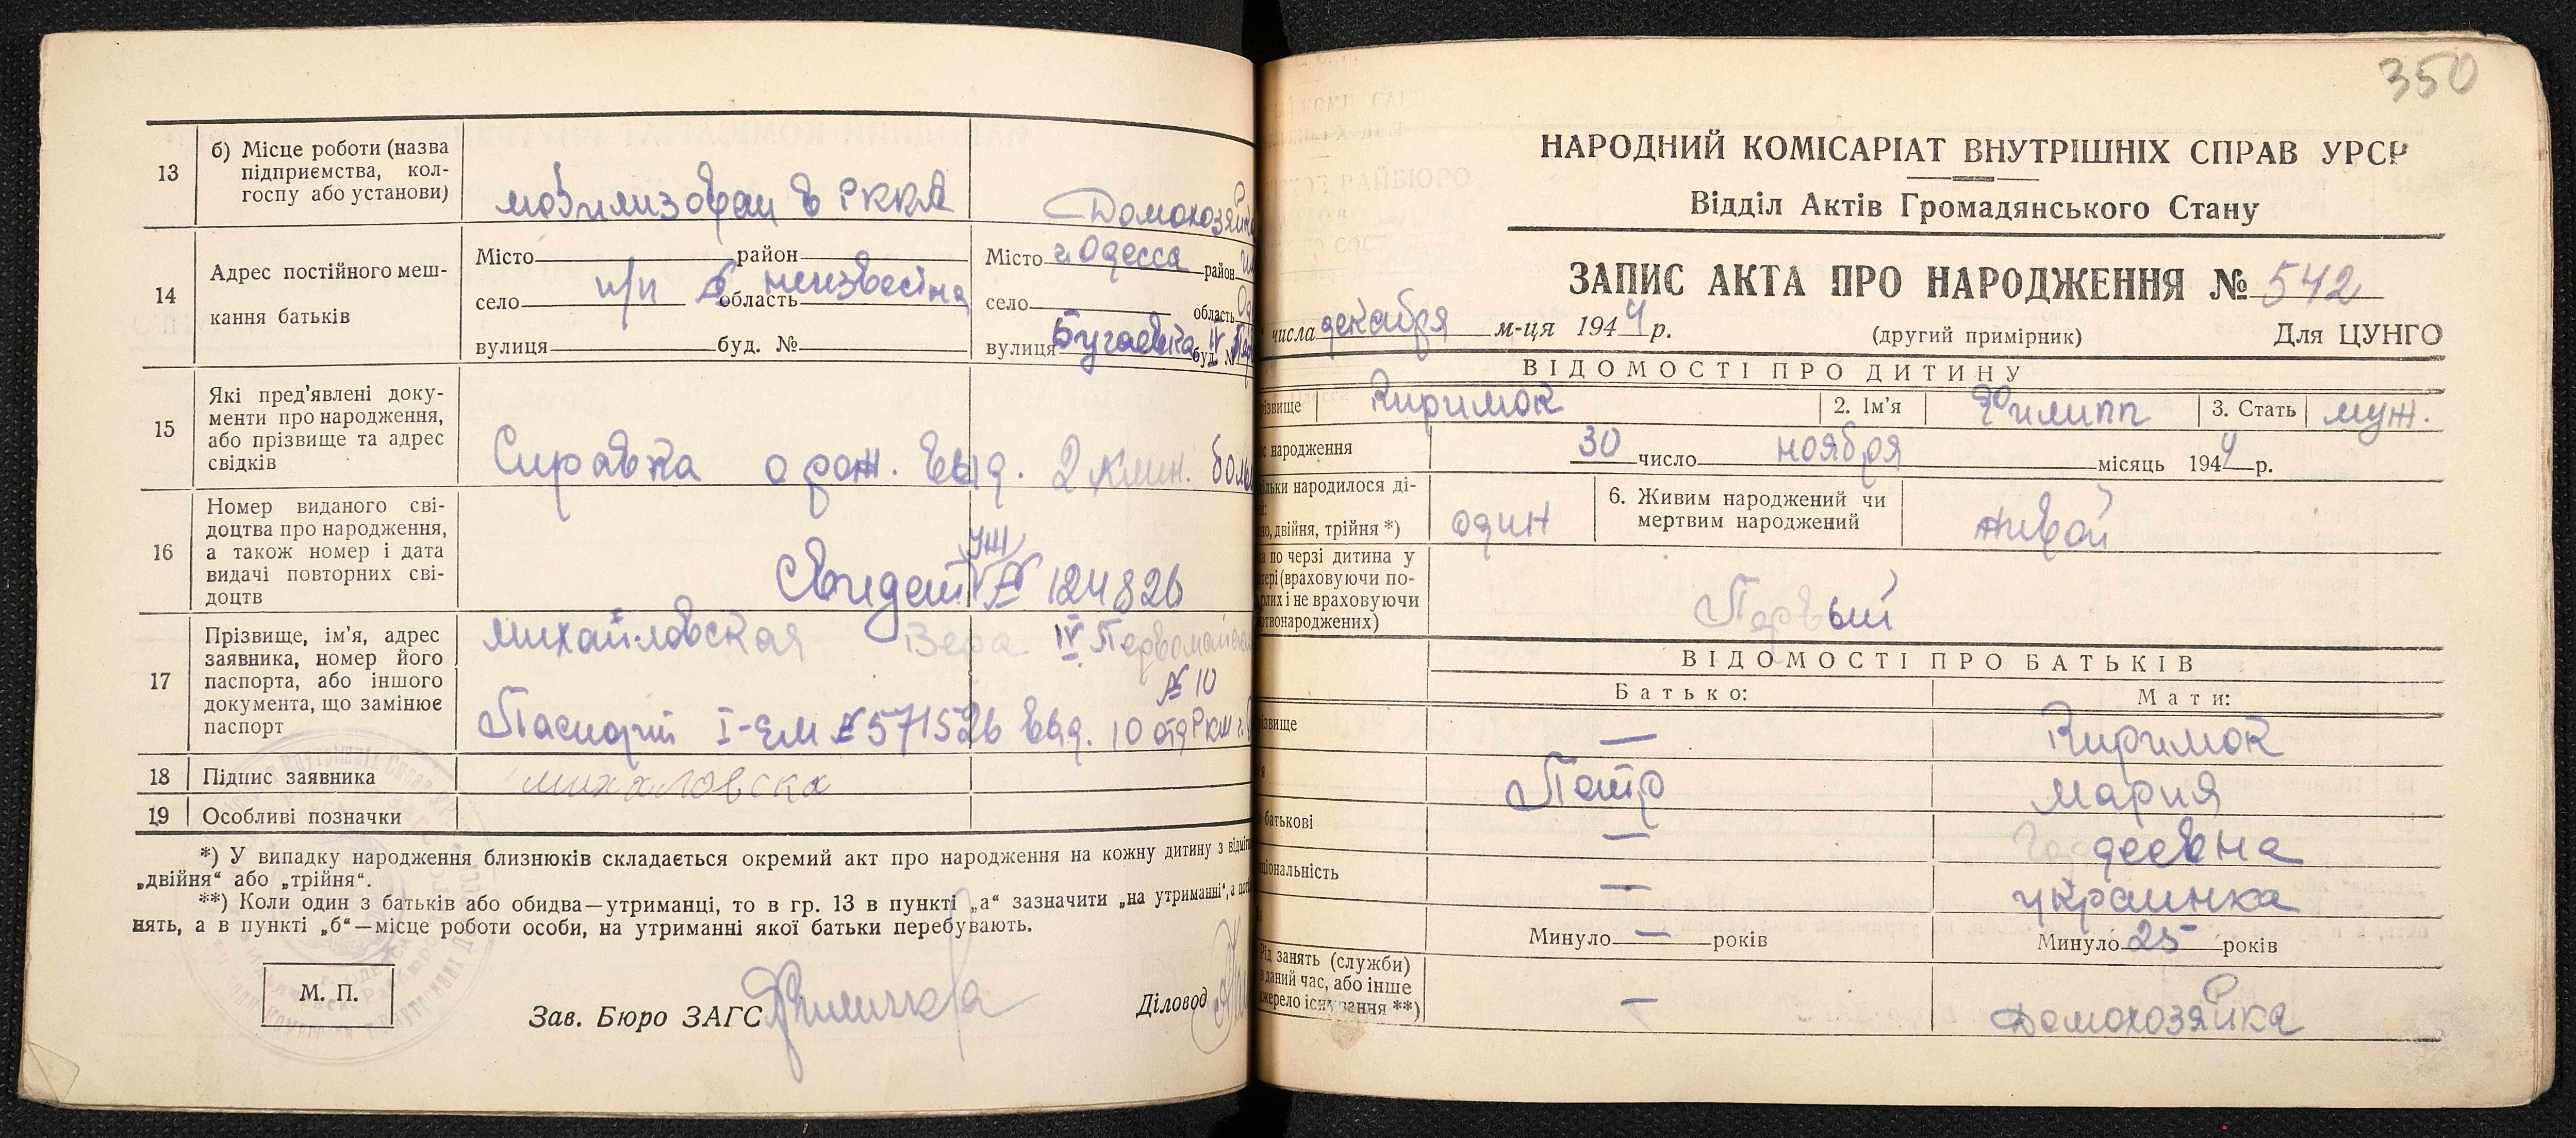 13
б) Місце роботи (назва
підприємства, кол-
госпу або установи)
мобилизован в РККА
Домохозяйка
14
Адрес постійного меш-
кання батьків
Місто район
п/п № неизвестна
село область
вулиця буд. №
Місто г. Одесса район
село область
вулиця Бугаевка буд. № IV
15
Які пред’явлені доку-
менти про народження,
або прізвище та адрес
свідків
Справка о рож. выд. 2 клин. боль
16
Номер виданого сві-
доцтва про народження,
а також номер і дата
видачі повторних сві-
доцтв
Свидет. УШ № 124826
17
Прізвище, ім’я, адрес
заявника, номер його
паспорта, або іншого
документа, що замінює
паспорт
Михайловская Вера IV Первомайская
№ 10
Паспорт I-ЕМ № 571526 выд. 10 отд РКМ г.
18 Підпис заявника
михаловска
19 Особливі позначки
*) У випадку народження близнюків складається окремий акт про народження на кожну дитину з відміт
„двійня“ або „трійня“.
**) Коли один з батьків або обидва—утриманці, то в гр. 13 в пункті „а“ зазначити „на утриманні“, а
нять, а в пункті „б“—місце роботи особи, на утриманні якої батьки перебувають.
М. П.
Зав. Бюро ЗАГС
Діловод
350
НАРОДНИЙ КОМІСАРІАТ ВНУТРІШНІХ СПРАВ УРСР
Відділ Актів Громадянського Стану
ЗАПИС АКТА ПРО НАРОДЖЕННЯ № 542
числа декабря м-ця 1944 р. (другий примірник) Для ЦУНГО
ВІДОМОСТІ ПРО ДИТИНУ
ізвище Киримок 2. Ім’я Филипп 3. Стать муж.
с народження 30 число ноября місяць 1944 р.
ільки народилося ді-
й:
но, двійня, трійня *)
один
6. Живим народжений чи
мертвим народжений
живой
а по черзі дитина у
тері (враховуючи по-
рлих і не враховуючи
ртвонароджених)
Первый
ВІДОМОСТІ ПРО БАТЬКІВ
Батько: Мати:
ізвище — Киримок
я Петр Мария
батькові — Фаддеевна
ціональність — украинка
Минуло — років Минуло 25 років
Рід занять (служби)
в даний час, або інше
жерело існування **)
— Домохозяйка